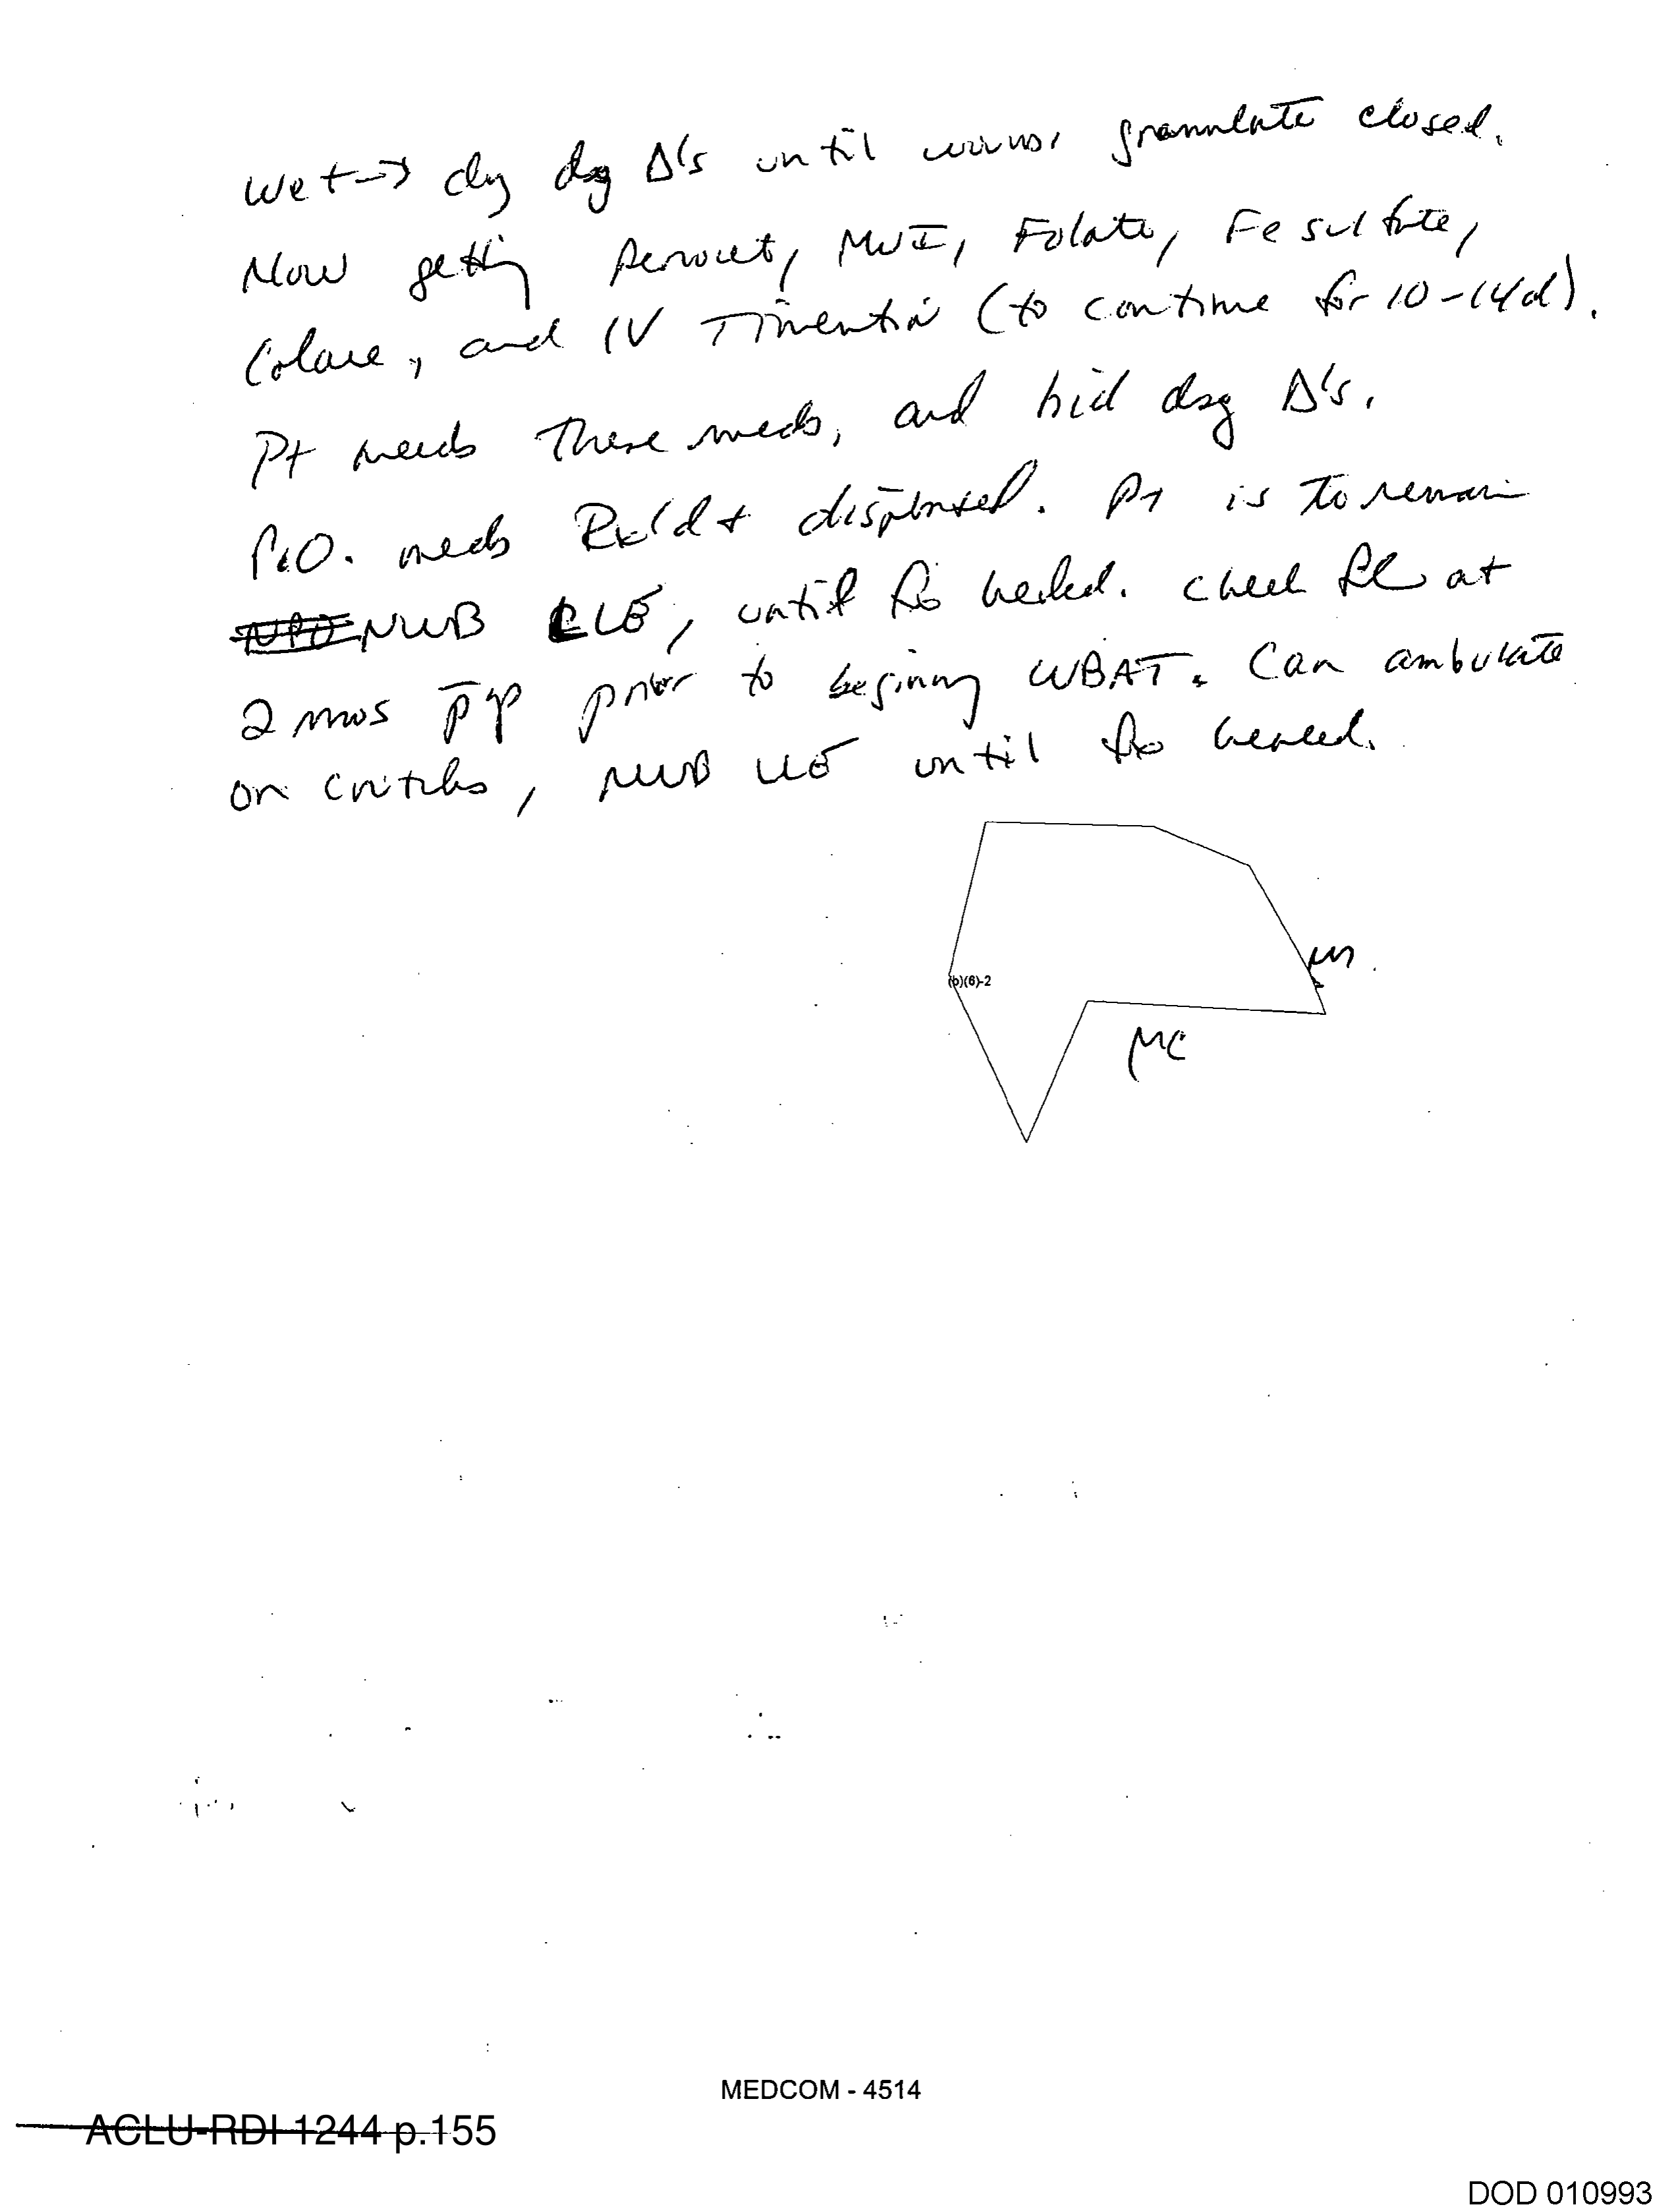 wet → dry dsg Δ's until wounds granulate closed.
Now getting Percocet, MVI, Folate, Fe sulfate,
Colace, and IV Timentin (to continue for 10-14d).
Pt needs these meds, and bid dsg Δ's.
P.O. meds Rx'd + dispensed. Pt is to remain
NPO NWB LLE, until fx healed. Check at
2 mos prior to begining WBAT. Can ambulate
on crutches, NWB LLE until fx healed.
(b)(6)-2
MC
MEDCOM - 4514
ACLU-RDI 1244 p.155
DOD 010993